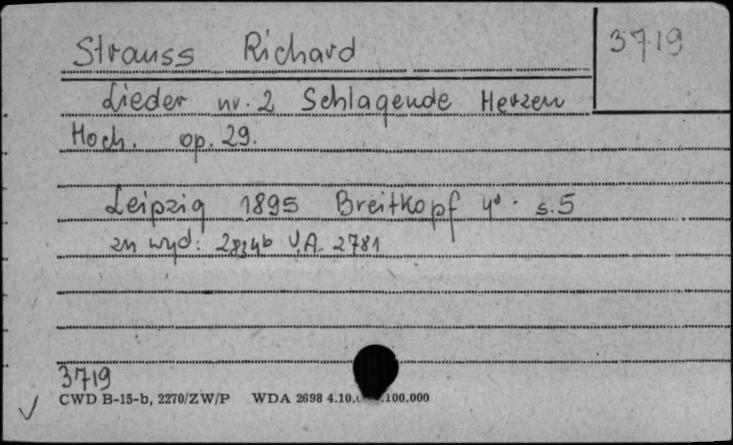 Strauss Richard
3719
Lieder nr. 2 Schlagende Herzen
Hoch. op. 29.
Leipzig 1895 Breitkopf 4° s. 5
zn wyd: V.A. 2781
3719
CWD B-15-b, 2270/ZW/P WDA 2698 4.10. .100.000